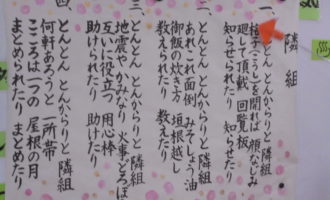 隣組
一、とんとん とんからりと 隣組
格子(こうし)を開れば 顔なじみ
廻して頂戴 回覧板
知らせられたり 知らせたり
二、とんとん とんからりと 隣組
あれこれ面倒 みそしょう油
御飯の炊き方 垣根越し
教えられたり 教えたり
三、とんとん とんからりと 隣組
地震や かみなり 火事どろぼう
互いに役立つ 用心棒
助けられたり 助けたり
四、とんとん とんからりと 隣組
何軒あろうと 一所帯
こころは一つの 屋根の月
まとめられたり まとめたり